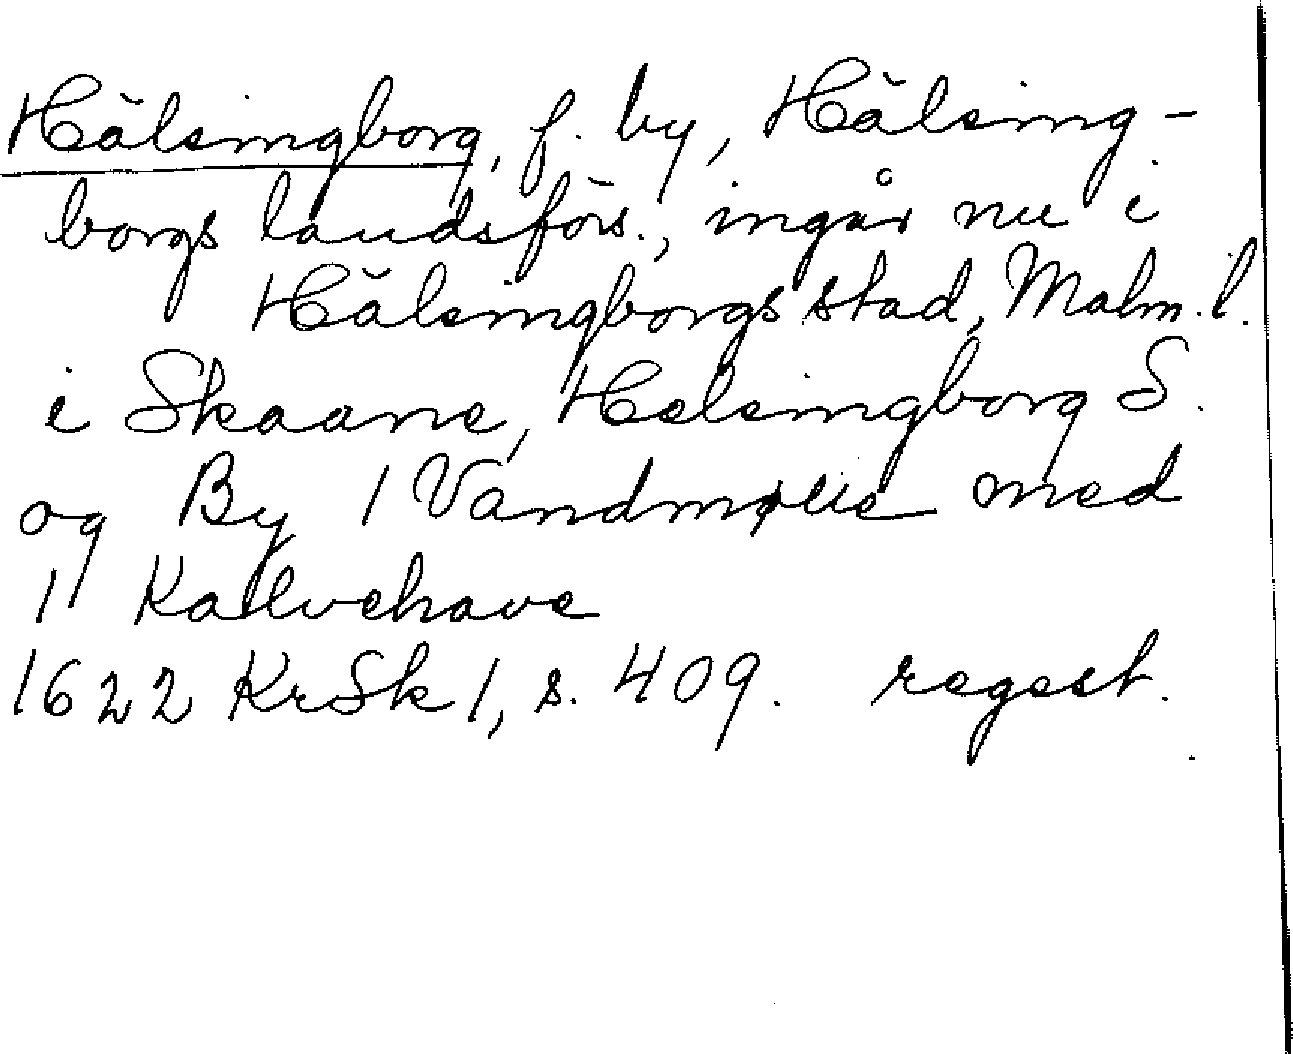 Hälsingborg, f. by, Hälsing-
borgs landsförs., ingår nu i
Hälsingborgs stad, Malm. l.
i Skaane, Helsingborg S.
og By 1 Vandmølle med
1 Kallvehave
1622 KrSk 1, s. 409. regest.